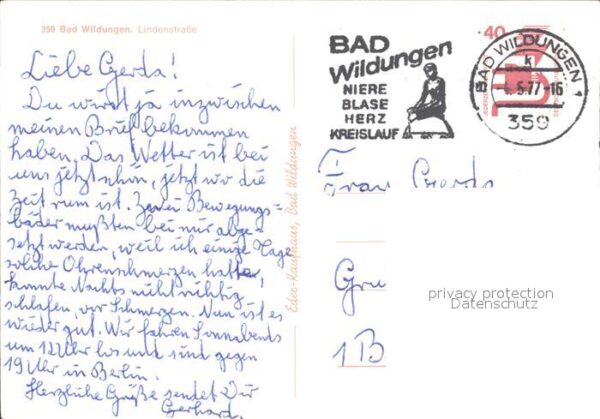 359 Bad Wildungen. Lindenstraße
Liebe Gerda!
Du wirst ja inzwischen
meinen Brief bekommen
haben. Das Wetter ist bei
uns jetzt schön, jetzt wo die
Zeit rum ist. Zwei Bewegungs-
bäder mußten bei mir abge-
setzt werden, weil ich einige Tage
solche Ohrenschmerzen hatte,
konnte Nachts nicht richtig
schlafen, vor Schmerzen. Nun ist es
wieder gut. Wir fahren Sonnabends
um 12 Uhr los und sind gegen
19 Uhr in Berlin.
Herzliche Grüße sendet Dir
Gerhard.
Eder-Kaufhaus, Bad Wildungen
BAD
Wildungen
NIERE
BLASE
HERZ
KREISLAUF
40
BAD WILDUNGEN 1
k
-4.5.77-16
359
Frau Gerda
Gru
1 B
privacy protection
Datenschutz